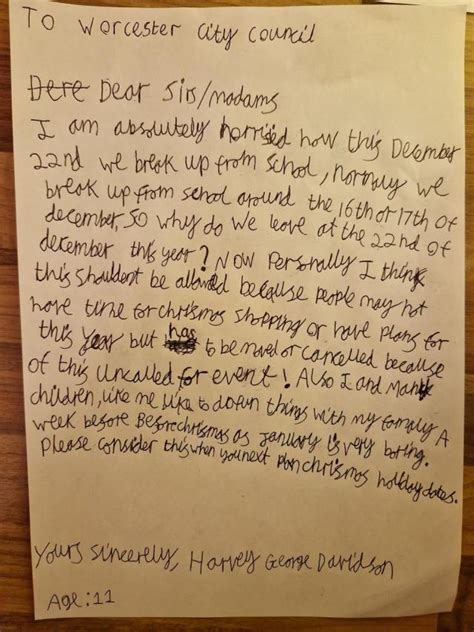 To Worcester City Council
Dere Dear Sirs/madams
I am absolutely horrised how this December
22nd we break up from school, normaly we
break up from school around the 16th or 17th of
december, so why do we leave at the 22nd of
december this year? Now Personally I think
this shouldent be allowed because people may not
have time for chrismos shopping or have plans for
this year but has to be moved or cancelled because
of this uncalled for event! Also I and Many
children, like me like to do fun things with my family A
week before Beforechrismas as january is very boring.
please consider this when you next plan chrismos holiday dates.
Yours sincerely, Harvey George Davidson
Age:11